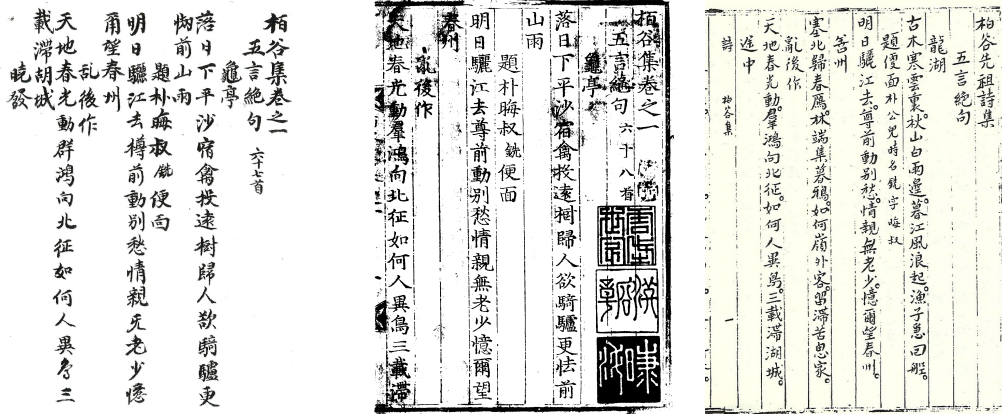 栢谷集卷之一
五言絕句 六十七首
龜亭
落日下平沙宿禽投遠樹歸人欲騎驢更
怕前山雨
題朴晦叔銑便面
明日驪江去樽前動別愁情親无老少憶
爾望春州
亂後作
天地春光動群鴻向北征如何人異鳥三
載滯胡城
曉發
栢谷集卷之一
五言絕句 六十八首
龜亭
落日下平沙宿禽投遠樹歸人欲騎驢更怯前
山雨
題朴晦叔銑便面
明日驪江去尊前動別愁情親無老少憶爾望
春州
亂後作
天地春光動羣鴻向北征如何人異鳥三載滯
柏谷先祖詩集
五言絕句
龍湖
古木寒雲裏。秋山白雨邊。暮江風浪起。漁子急回船。
題便面 朴公兒時名銑字晦叔
明日驪江去。尊前動別愁。情親無老少。憶爾望春州。
塞北歸春鴈。林端集暮鴉。如何嶺外客。留滯苦思家。
亂後作
天地春光動。羣鴻向北征。如何人異鳥。三載滯湖城。
途中
詩 柏谷集 一